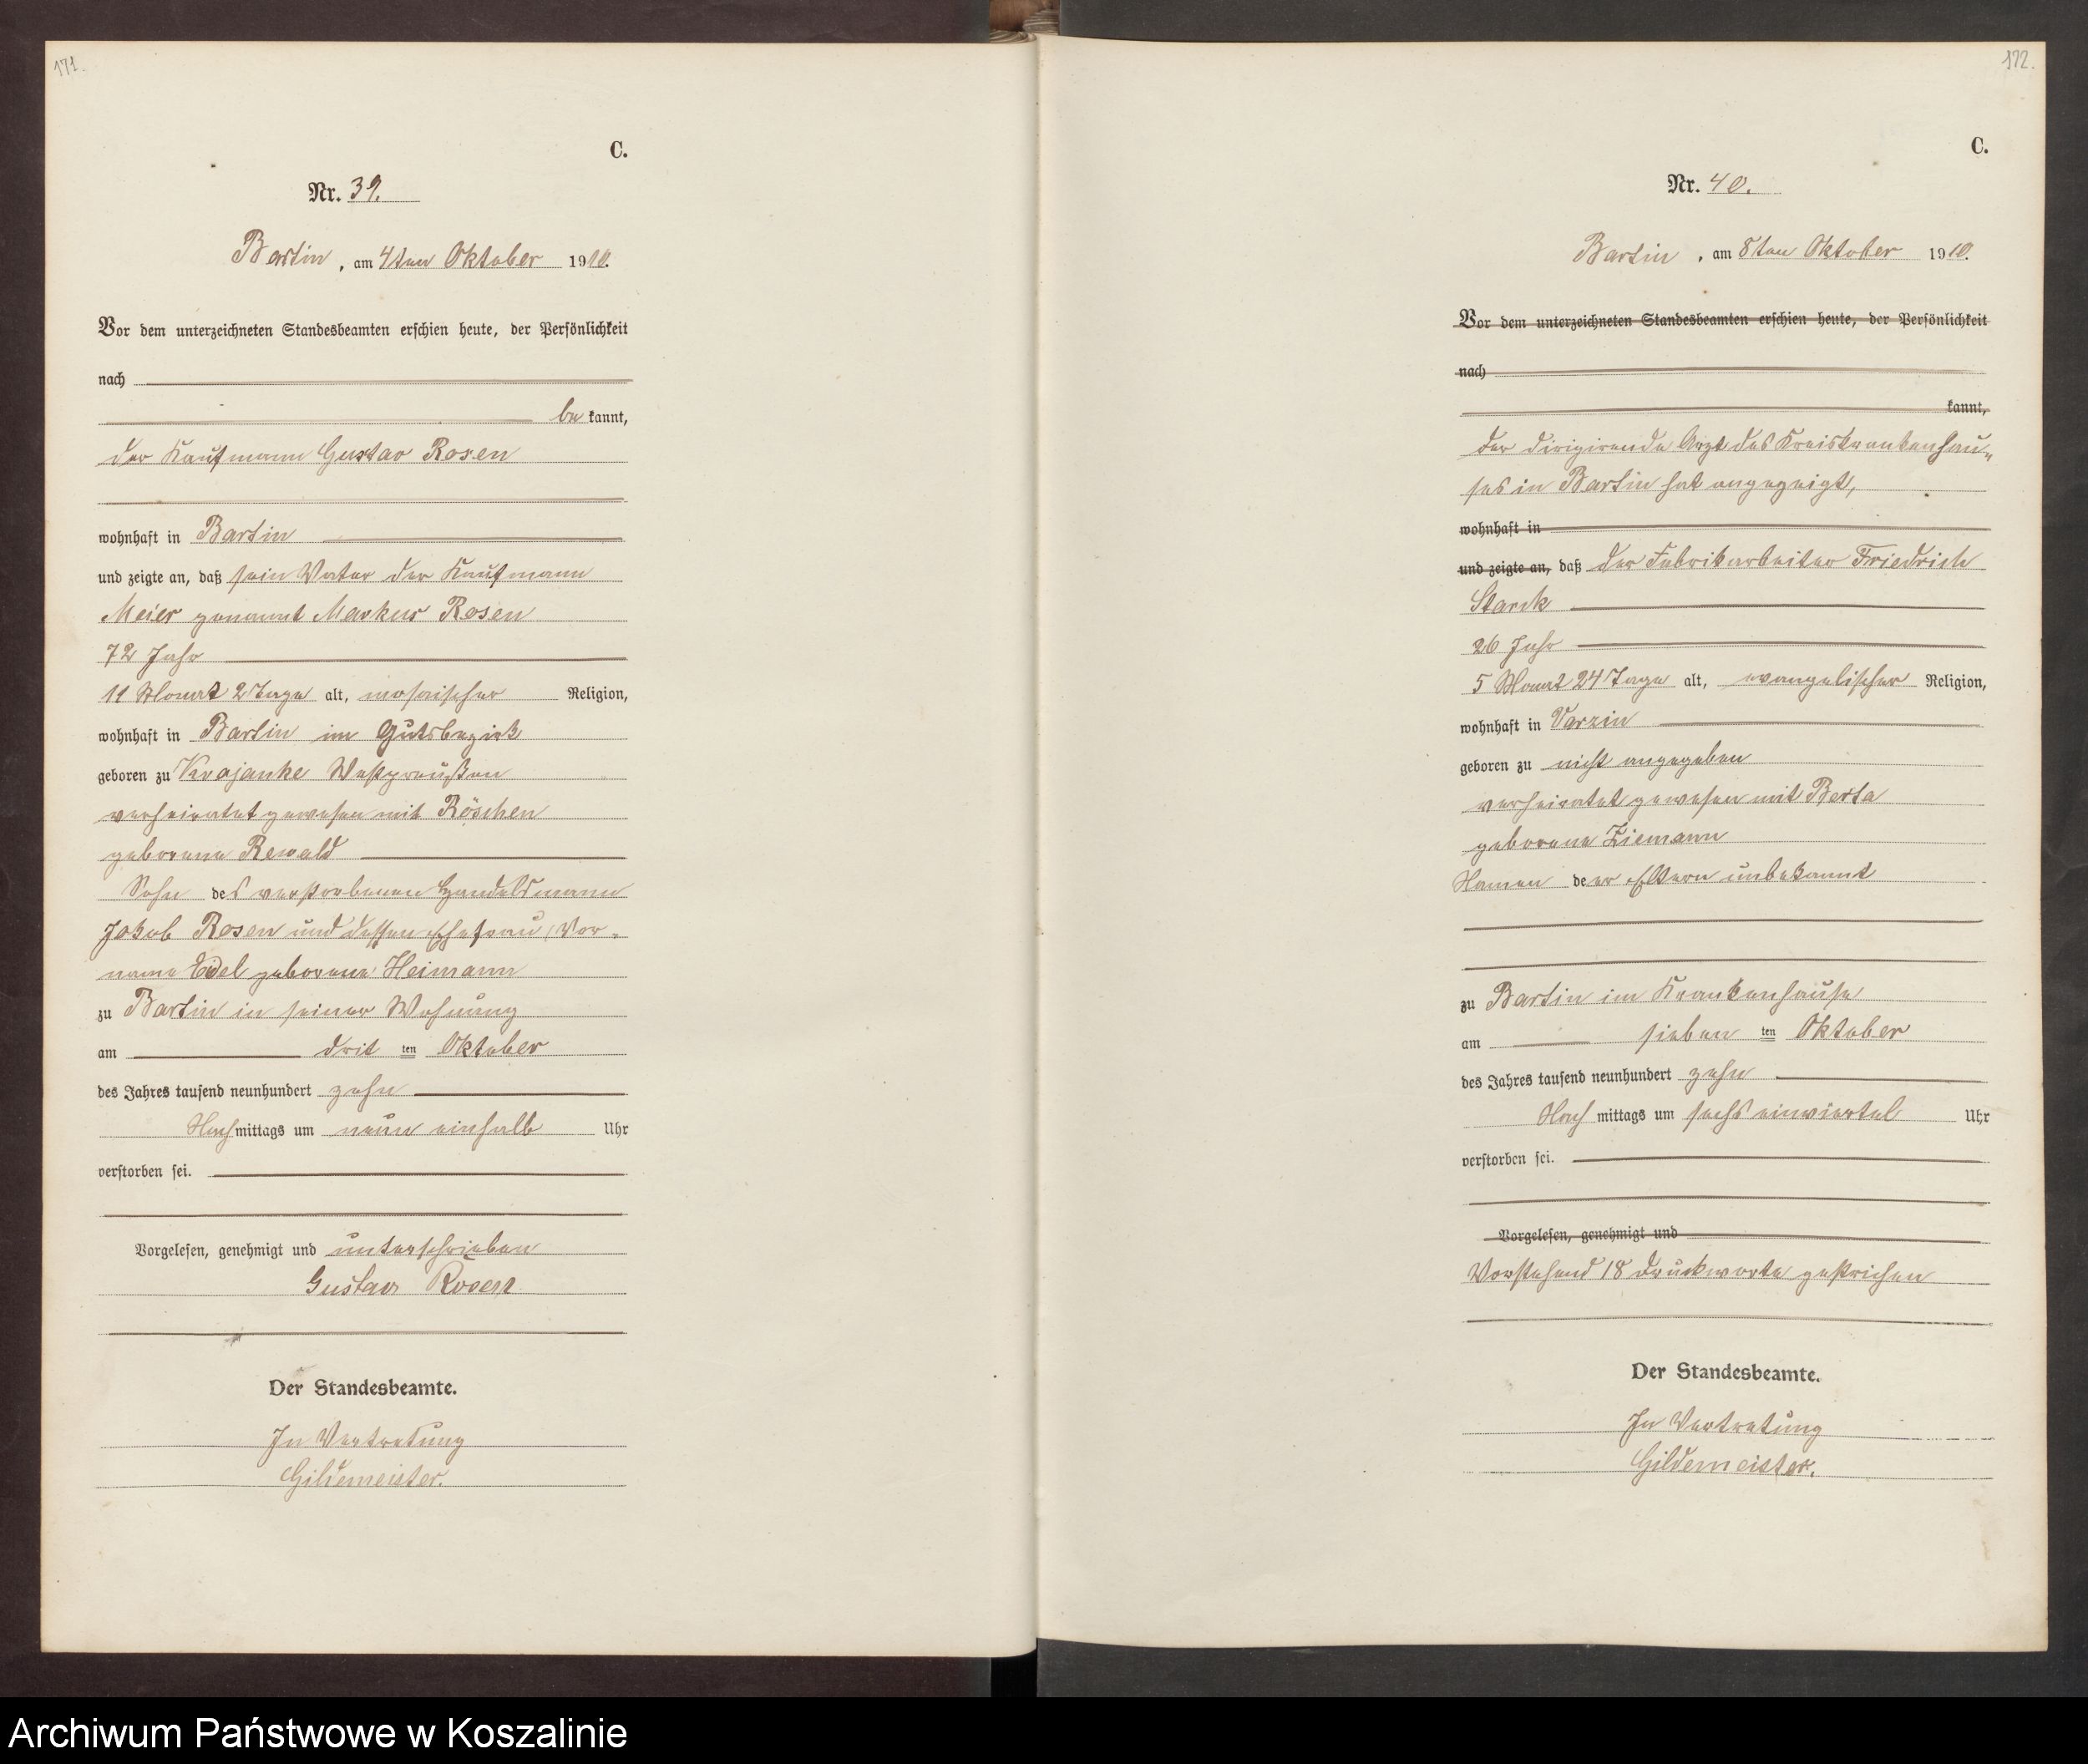 171.
C.
Nr. 39.
Bartin, am 4ten Oktober 1910.
Vor dem unterzeichneten Standesbeamten erschien heute, der Persönlichkeit
nach
be kannt,
der Kaufmann Gustav Rosen
wohnhaft in Bartin
und zeigte an, daß sein Vater der Kaufmann
Meier genannt Markus Rosen
72 Jahr
11 Monat 2 Tage alt, mosaischer Religion,
wohnhaft in Bartin im Gutsbezirk
geboren zu Krojanke Westpreußen
verheiratet gewesen mit Röschen
geborene Rewald
Sohn des verstorbenen Handelsmann
Jakob Rosen und dessen Ehefrau, Vor-
name Eidel geborene Heimann
zu Bartin in seiner Wohnung
am drit ten Oktober
des Jahres tausend neunhundert zehn
Nachmittags um neun einhalb Uhr
verstorben sei.
Vorgelesen, genehmigt und unterschrieben
Gustav Rosen
Der Standesbeamte.
In Vertretung
Gildemeister.
172.
C.
Nr. 40.
Bartin, am 8ten Oktober 1910.
Vor dem unterzeichneten Standesbeamten erschien heute, der Persönlichkeit
nach
kannt,
Der dirigirende Arzt des Kreiskrankenhau-
ses in Bartin hat angezeigt,
wohnhaft in
und zeigte an, daß der Fabrikarbeiter Friedrich
Starck
26 Jahr
5 Monat 24 Tage alt, evangelischer Religion,
wohnhaft in Varzin
geboren zu nicht angegeben
verheiratet gewesen mit Berta
geborene Ziemann
Namen de er Eltern unbekannt
zu Bartin im Krankenhause
am sieben ten Oktober
des Jahres tausend neunhundert zehn
Nach mittags um sechs einviertel Uhr
verstorben sei.
Vorgelesen, genehmigt und
Vorstehend 18 Druckworte gestrichen
Der Standesbeamte.
In Vertretung
Gildemeister.
Archiwum Państwowe w Koszalinie